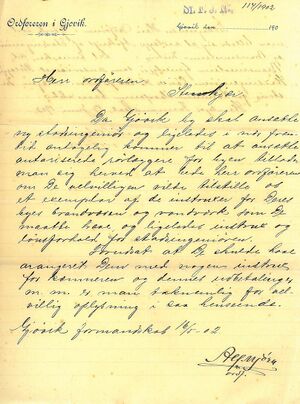 Ordføreren i Gjøvik
117/1902
Gjøvik den 190
Herr ordføreren
Stenkjær
Da Gjøvik by skal ansætte
ny stadsingeniør og ligeledes i nær frem-
tid antagelig kommer til at ansætte
autoriserede rørlæggere for byen tillader
man sig herved at bede herr ordføreren
om De velvilligen vilde tilstille os
et exemplar af de instruxer for Deres
byes brandvæsen og vandværk som De
maatte have, og ligeledes instrux og
lønsforhold for stadsingeniøren.
Forsaavidt De skulde have
arrangeret Dem med nogen instrux
for kæmneren og dennes
m. m. er man taknemlig for vel-
villig oplysning i saa henseende.
Gjøvik formandskab 02
ordf.